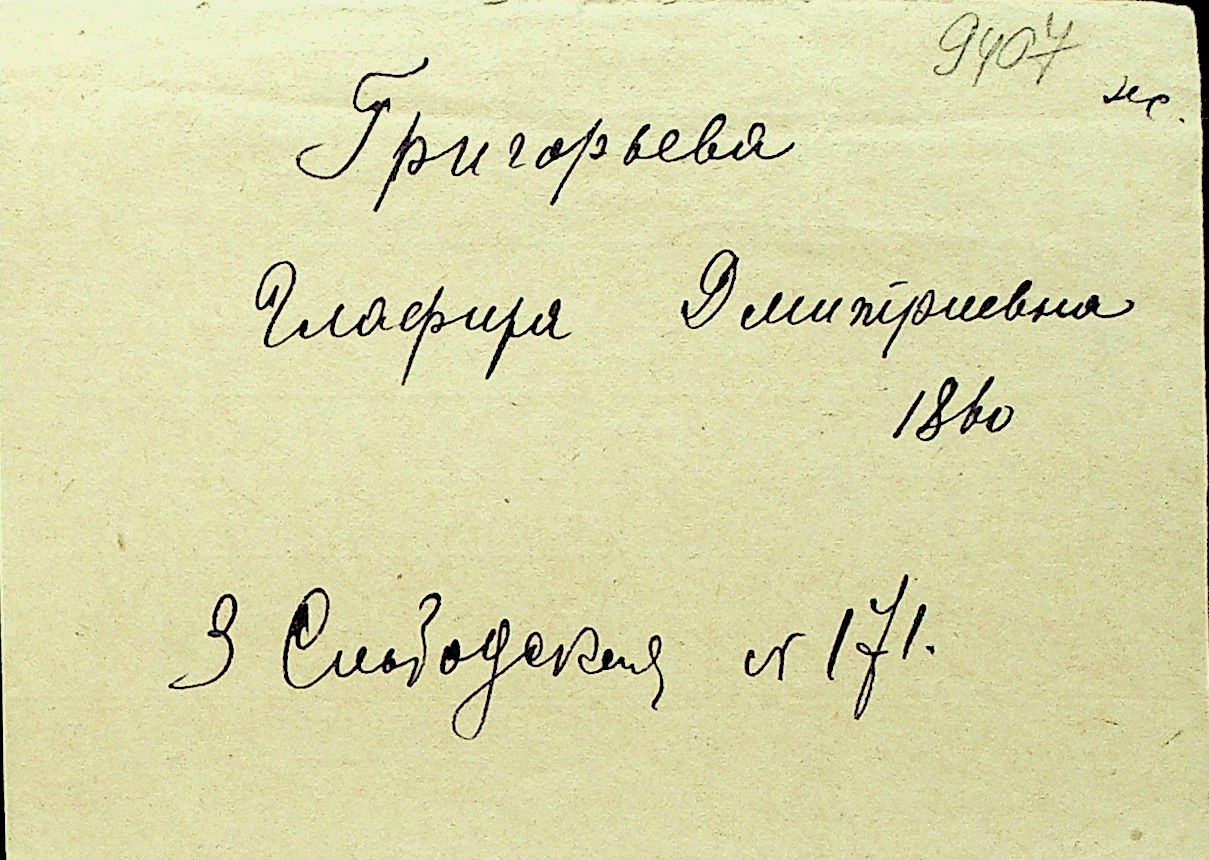 9407
Григорьева
Глафира Дмитриевна
1860
3 Слободская № 171.